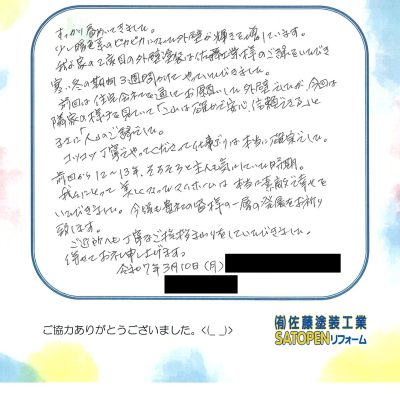 すっかり春めいてきました。
少し暖色系のピカピカになった外壁が輝きを増しています。
我が家の2度目の外壁塗装は佐藤塗装様のご縁をいただき
寒い冬の期間3週間かけてやっていただきました。
前回は住宅会社を通じてお願いした外壁でしたが、今回は
隣家の様子を見ていて「ここは確かで安心、信頼できる」と
まさに「人」のご縁でした。
コツコツ丁寧にやってくださって仕事ぶりは本当に確実でした。
前回から12〜13年、そろそろと主人も気にしていた時期。
私たちにとって美しくなったマイホームは本当に素敵で幸せを
いただきました。今後も貴社の皆様の一層の発展をお祈り
致します。
ご近所へも丁寧なご挨拶まわりをしていただきました。
併せてお礼申し上げます。
令和7年3月10日(月)
ご協力ありがとうございました。<(_ _)>
㈲佐藤塗装工業
SATOPENリフォーム